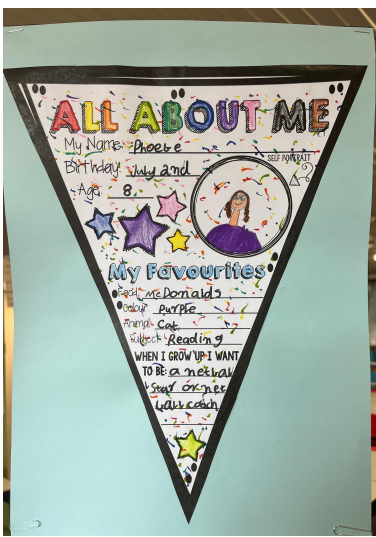 ALL ABOUT ME
My Name: Phoebe
SELF PORTRAIT
Birthday: July 2nd
Age: 8
My Favourites
Food: McDonalds
Colour: Purple
Animal: Cat
Subject: Reading
WHEN I GROW UP I WANT
TO BE: a netbal
l star or net
ball coach